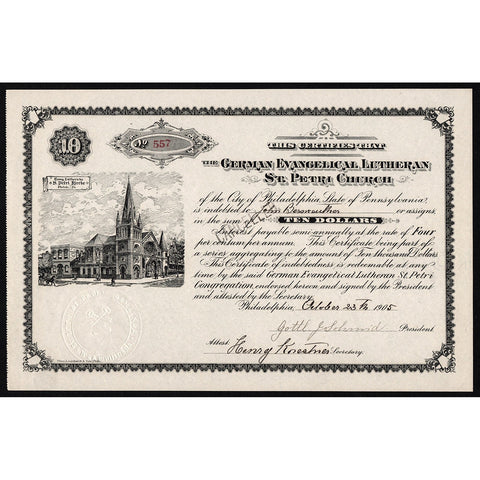 10
No 557
THIS CERTIFIES THAT
THE GERMAN EVANGELICAL LUTHERAN
ST. PETRI CHURCH
St. Petri Kirche
of the City of Philadelphia State of Pennsylvania,
is indebted to John or assigns
in the sum of TEN DOLLARS
Interest payable semi-annually at the rate of Four
per centum per annum. This Certificate being part of
a series aggregating to the amount of Ten Thousand Dollars
This Certificate of indebtedness is redeemable at any
time by the said German Evangelical Lutheran St. Petri
Congregation, endorsed hereon and signed by the President
and attested by the Secretary.
Philadelphia, October 25th 1905
Gottl. J. Schmid President
Attest Henry Koestner Secretary.